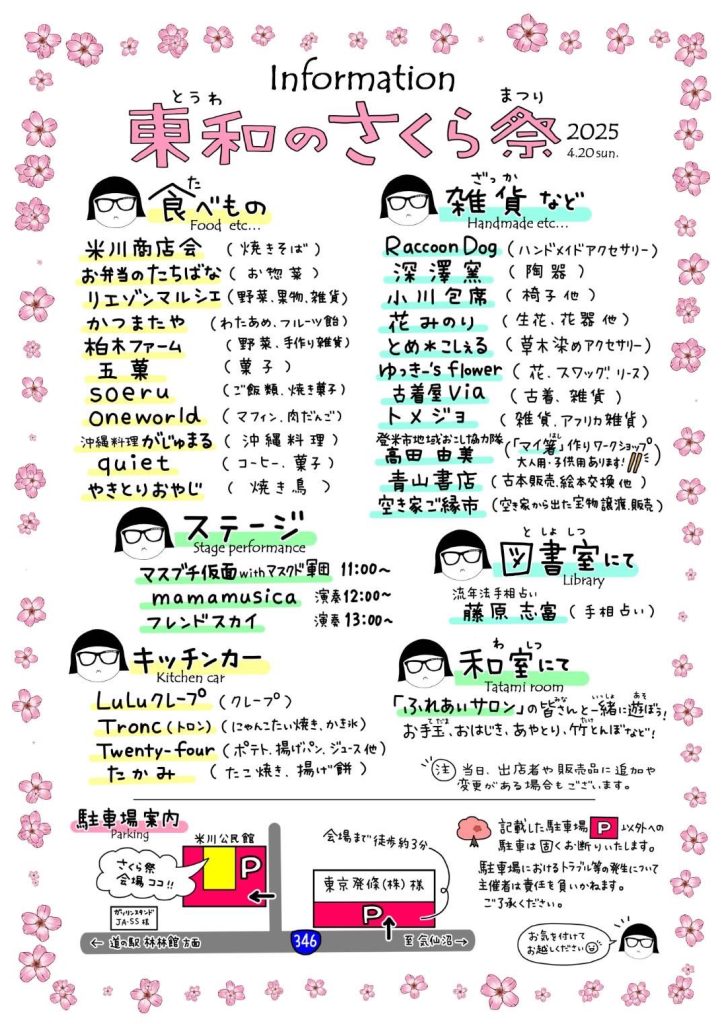 Information
とうわ まつり
東和のさくら祭 2025
4.20 sun.
た
食べもの
Food etc...
米川商店会 (焼きそば)
お弁当のたちばな (お惣菜)
リエゾンマルシェ (野菜、果物、雑貨)
かつまたや (わたあめ、フルーツ飴)
柏木ファーム (野菜、手作り雑貨)
五菓 (菓子)
soeru (ご飯類、焼き菓子)
oneworld (マフィン、肉だんご)
沖縄料理がじゅまる (沖縄料理)
quiet (コーヒー、菓子)
やきとりおやじ (焼き鳥)
ざっか
雑貨など
Handmade etc...
Raccoon Dog (ハンドメイドアクセサリー)
深澤窯 (陶器)
小川包席 (椅子他)
花みのり (生花、花器他)
とめ*こしぇる (草木染めアクセサリー)
ゆっきー's flower (花、スワッグ、リース)
古着屋Via (古着、雑貨)
トメジョ (雑貨、アフリカ雑貨)
登米市地域おこし協力隊
高田由美 (「マイ箸」作りワークショップ
はし
大人用・子供用あります!)
青山書店 (古本販売、絵本交換他)
空き家ご縁市 (空き家から出た宝物譲渡、販売)
ステージ
Stage performance
マスブチ仮面withマスクド軍団 11:00～
mamamusica 演奏12:00～
フレンドスカイ 演奏13:00～
としょしつ
図書室にて
Library
流年法手相占い
藤原志富 (手相占い)
キッチンカー
Kitchen car
LuLuクレープ (クレープ)
Tronc(トロン) (にゃんこたい焼き、かき氷)
Twenty-four (ポテト、揚げパン、ジュース他)
たかみ (たこ焼き、揚げ餅)
わしつ
和室にて
Tatami room
みな いっしょ あそ
「ふれあいサロン」の皆さんと一緒に遊ぼう!
てだま たけ
お手玉、おはじき、あやとり、竹とんぼなど!
注 当日、出店者や販売品に追加や
変更がある場合もございます。
駐車場案内
Parking
米川公民館
さくら祭
会場ココ!!
P
ガソリンスタンド
JA-SS様
← 道の駅林林館方面
346
会場まで徒歩約3分
東京発條(株)様
P
至気仙沼 →
記載した駐車場 P 以外への
駐車は固くお断りいたします。
駐車場におけるトラブル等の発生について
主催者は責任を負いかねます。
ご了承ください。
お気を付けて
お越しください